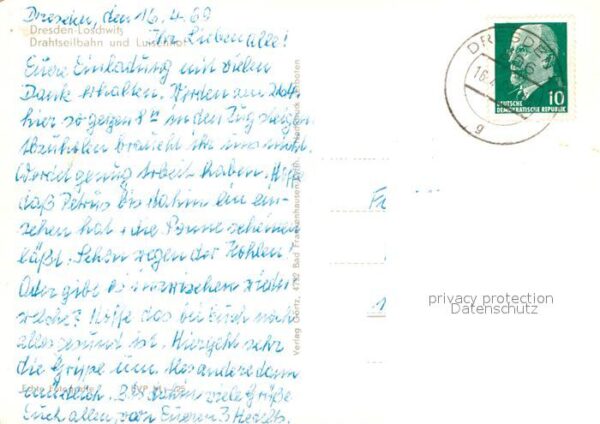 Dresden, den 16.4.69
Dresden-Loschwitz
Drahtseilbahn und Luisenhof
Ihr Lieben alle!
Eure Einladung mit vielen
Dank erhalten. Werden am
hier so gegen 8 in den Zug steigen.
Abzuholen braucht ihr uns nicht.
Werdet genug Arbeit haben. Hoffe
daß Petrus bis dahin ein ein-
sehen hat + die Sonne scheinen
läßt. Schon wegen der Kohlen!
Oder gibt es inzwischen wieder
welche? Hoffe das bei Euch noch
alles gesund ist. Hier geht sehr
die Grippe um. Alles andere dann
mündlich. Bis dahin viele Grüße
Echte Fotografie
Euch allen, von Eueren 3
Verlag Görtz, 4732 Bad Frankenhausen/Kyffh.
DRESDEN
16.4.
g
DEUTSCHE
DEMOKRATISCHE REPUBLIK
10
privacy protection
Datenschutz